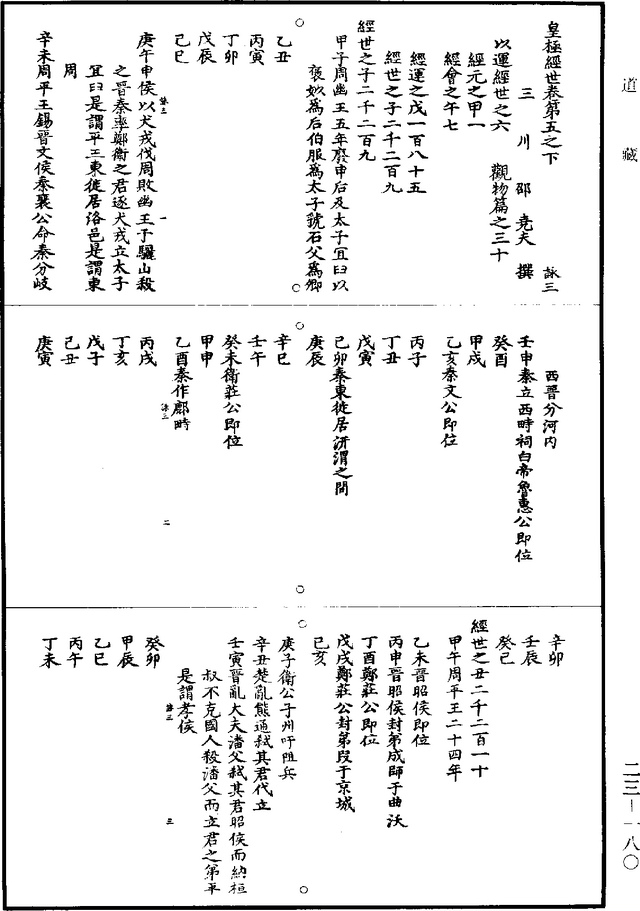 道藏
皇極經世卷第五之下 詠三
三川邵堯夫撰
以運經世之六 觀物篇之三十
經元之甲一
經會之午七
經運之戊一百八十五
經世之子二千二百九
經世之子二千二百九
甲子周幽王五年廢申后及太子宜臼以
褒姒為后伯服為太子虢石父為卿
乙丑
丙寅
丁卯
戊辰
己巳
庚午申侯以犬戎伐周敗幽王于驪山殺
之晉秦率鄭衛之君逐犬戎立太子
宜臼是謂平王東徙居洛邑是謂東
周
辛未周平王錫晉文侯秦襄公命秦分岐
詠三 一
西晉分河內
壬申秦立西畤祠白帝魯惠公即位
癸酉
甲戌
乙亥秦文公即位
丙子
丁丑
戊寅
己卯秦東徙居汧渭之間
庚辰
辛巳
壬午
癸未衛莊公即位
甲申
乙酉秦作鄜畤
丙戌
丁亥
戊子
己丑
庚寅
詠三 二
辛卯
壬辰
癸巳
經世之丑二千二百一十
甲午周平王二十四年
乙未晉昭侯即位
丙申晉昭侯封弟成師于曲沃
丁酉鄭莊公即位
戊戌鄭莊公封弟段于京城
己亥
庚子衛公子州吁阻兵
辛丑楚亂熊通弒其君代立
壬寅晉亂大夫潘父弒其君昭侯而納桓
叔不克國人殺潘父而立君之弟平
是謂孝侯
癸卯
甲辰
乙巳
丙午
丁未
詠三 三
二三—一八〇